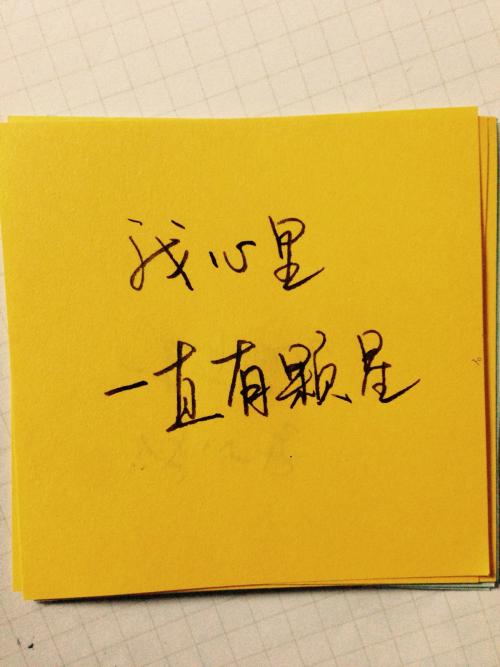 我心里
一直有颗星